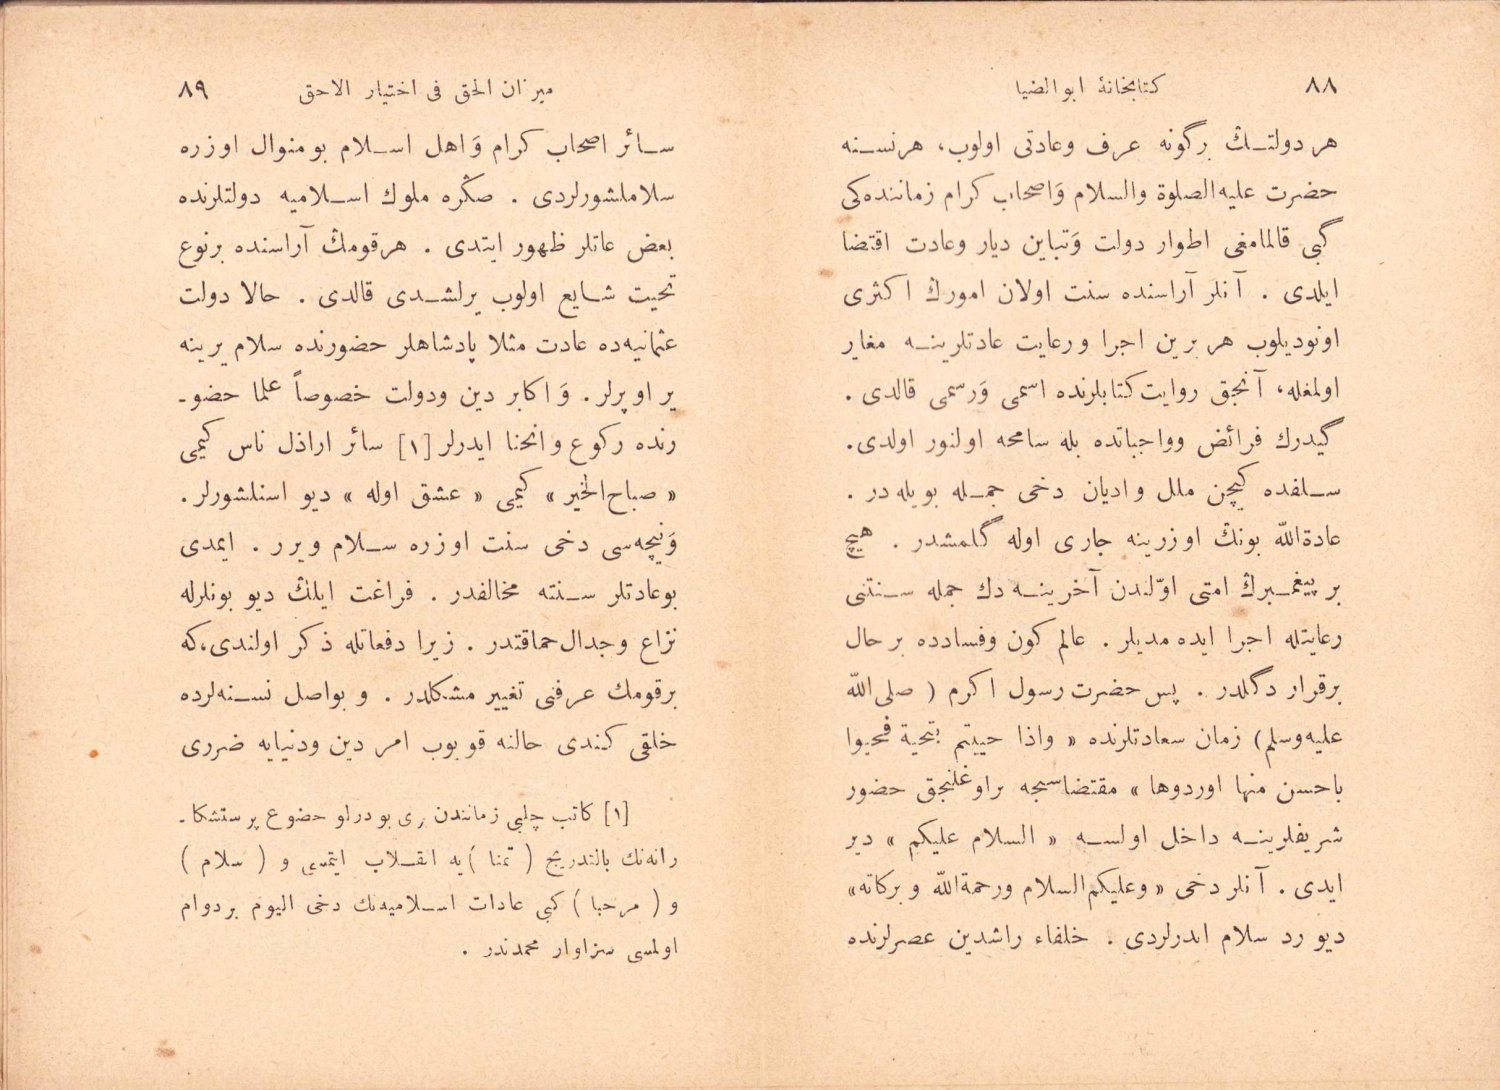 ٨٨ كتابخانهٔ ابوالضيا
هر دولتـڭ برگونه عرف وعادتى اولوب، هرنسـنه
حضرت عليه‌الصلوة والسلام وَاصحاب كرام زماننده‌كى
گبى قالمامغى اطوار دولت وَتباين ديار وعادت اقتضا
ايلدى . آنلر آراسنده سنت اولان امورك اكثرى
اونوديلوب هر برين اجرا ورعايت عادتلرينـه مغاير
اولمغله، آنجق روايت كتابلرنده اسمى وَرسمى قالدى .
گيدرك فرائض وواجباتده بله سامحه اولنور اولدى.
سـلفده كيچن ملل واديان دخى جمـله بويله‌در .
عادةالله بونڭ اوزرينه جارى اوله گلمشدر . هيچ
بر پيغمـبرڭ امتى اوّلندن آخرينـه دك جمله سـنتنى
رعايتله اجرا ايده‌مديلر . عالم كون وفسادده بر حال
برقرار دگلدر . پس حضرت رسول اكرم ( صلى‌الله
عليه‌وسلم) زمان سعادتلرنده « واذا حييتم بتحية فحيوا
باحسن منها اوردوها » مقتضاسيجه براوغلنجق حضور
شريفلرينـه داخل اولسـه « السلام عليكم » دير
ايدى . آنلر دخى « وعليكم‌السلام ورحمةالله وبركاته»
ديو رد سلام ايدرلردى . خلفاء راشدين عصرلرنده
ميزان الحق فى اختيار الاحق ٨٩
سـائر اصحاب كرام وَاهل اسـلام بومنوال اوزره
سلاملشورلردى . صڭره ملوك اسـلاميه دولتلرنده
بعض عاتلر ظهور ايتدى . هرقومڭ آراسنده برنوع
تحيت شـايع اولوب يرلشـدى قالدى . حالا دولت
عثمانيه‌ده عادت مثلا پادشاهلر حضورنده سلام يرينه
ير اوپرلر . وَاكابر دين ودولت خصوصاً علما حضوـ
رنده ركوع وانحنا ايدرلر [١] سائر اراذل ناس كيمى
« صباح‌الخير » كيمى « عشق اوله » ديو اسنلشورلر .
وَنيچه‌سى دخى سنت اوزره سـلام ويرر . ايمدى
بوعادتلر سـنته مخالفدر . فراغت ايلڭ ديو بونلرله
نزاع وجدال حماقتدر . زيرا دفعاتله ذكر اولندى،كه
برقومك عرفنى تغيير مشكلدر . و بواصل نسـنه‌لرده
خلقى كندى حالنه قويوب امر دين ودنيايه ضررى
[١] كاتب چلبى زمانندن برى بودرلو حضوع پرستشكاـ
رانه‌نك بالتدريج ( تمنا ) يه انقـلاب ايتمسى و ( سلام )
و ( مرحبا ) كبى عادات اسـلاميه‌نك دخى اليوم بردوام
اولمسى سزاوار محمدتدر .